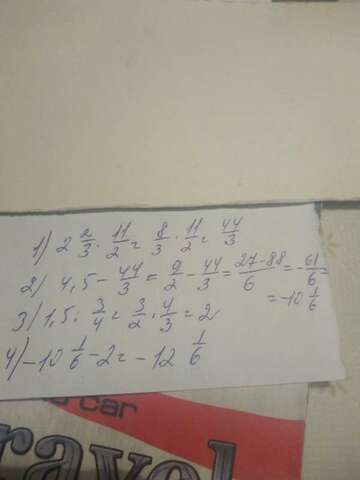 1) 2 2/3 · 11/2 = 8/3 · 11/2 = 44/3
2) 4,5 - 44/3 = 9/2 - 44/3 = 27-88/6 = -61/6 =
= -10 1/6
3) 1,5 : 3/4 = 3/2 · 4/3 = 2
4) -10 1/6 - 2 = -12 1/6
car
ravel